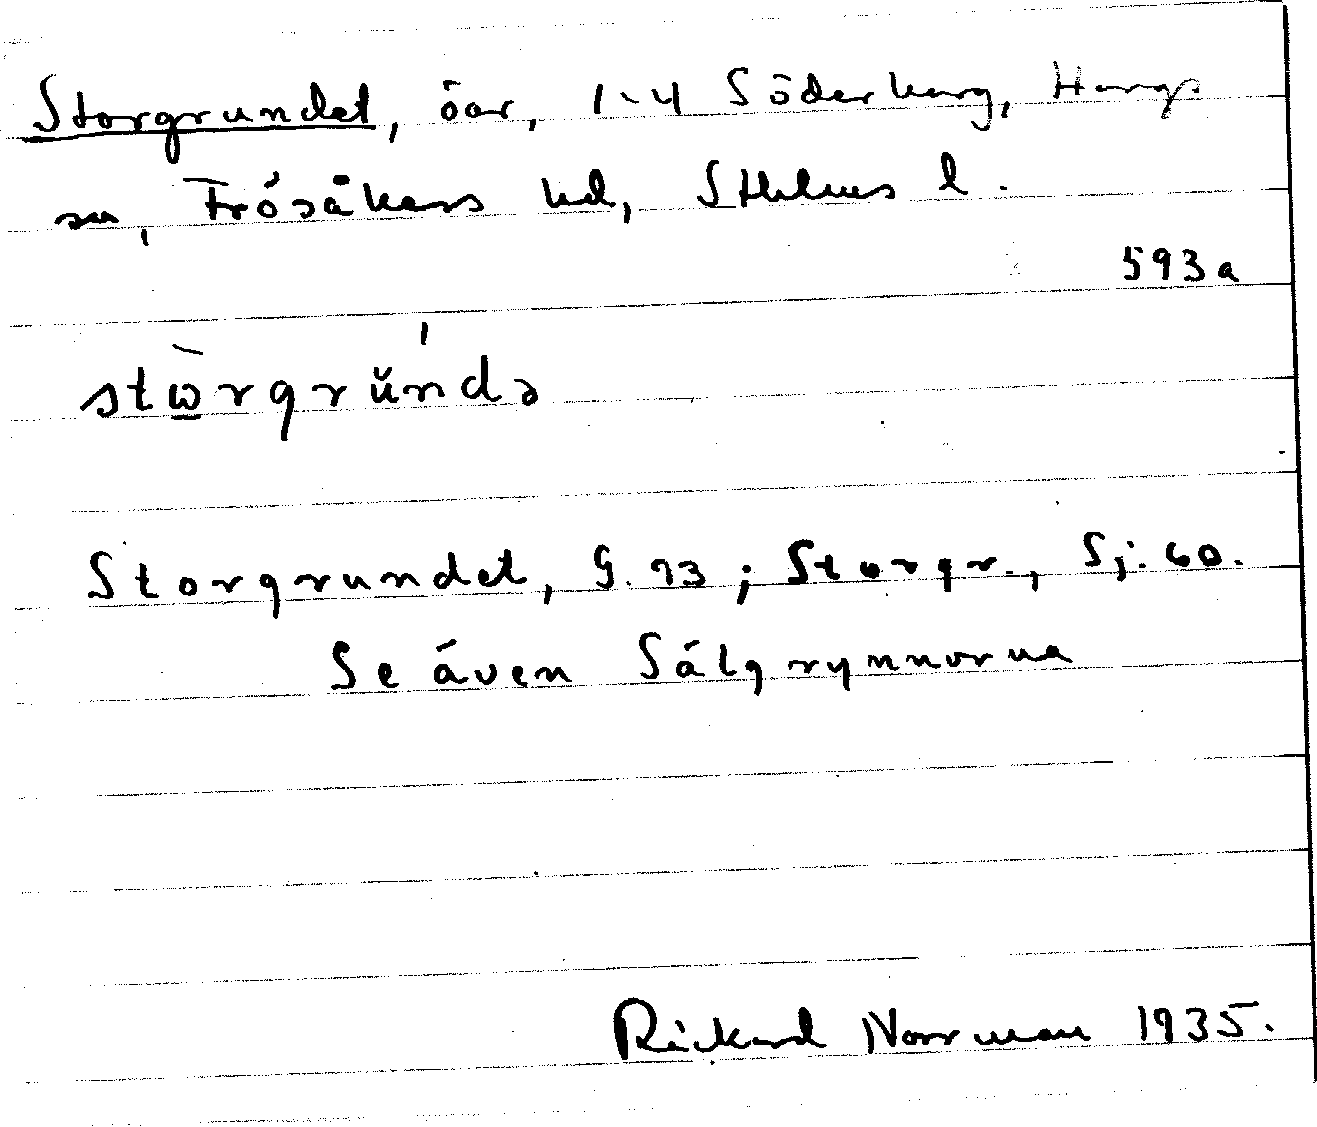 Storgrundet, öar, 1-4 Söderberg, Hargs
sn, Frösåkers hd, Sthlms l.
593a
stὼ̲rgrŭ́ndə
Storgrundet, G. 93; Storgr., Sj. 60.
Se även Sälgrynnorna
Rickard Norrman 1935.